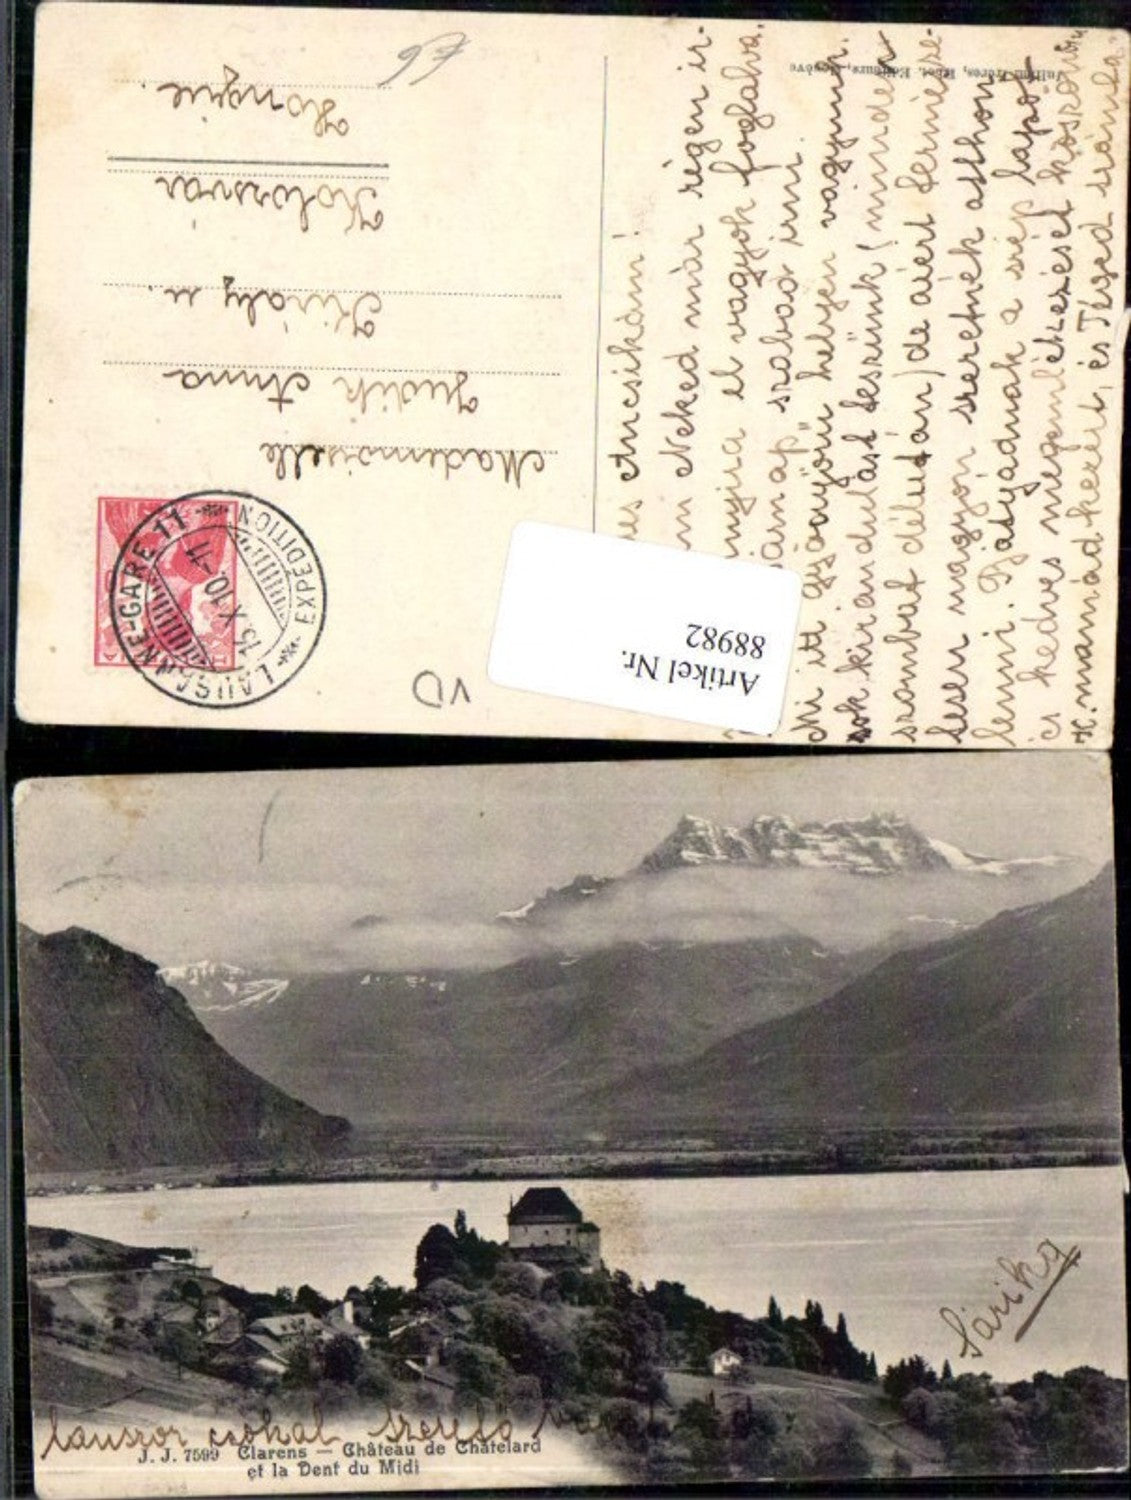 97
Mademoiselle
Judik Anna
Király u.
Kolozsvár
Hongrie
LAUSANNE-GARE 11
EXPEDITION
15 X 10-11
VD
Artikel Nr.
88982
Jullien frères, Phot. Editeurs, Genève
Ancsikám!
Neked már régen ir-
nyira el vagyok foglalva.
nap szabad irni.
Mi itt gyönyörü helyen vagyunk.
sok kirándulást teszünk (minden
szombat délután) de azért természe-
tesen nagyon szeretnék otthon
lenni. apádnak a szép lapot
és kedves megemlékezését köszönöm
mamád kezeit, és Téged számta
Sárika
csókol szerető
J. J. 7599 Clarens — Château de Châtelard
et la Dent du Midi